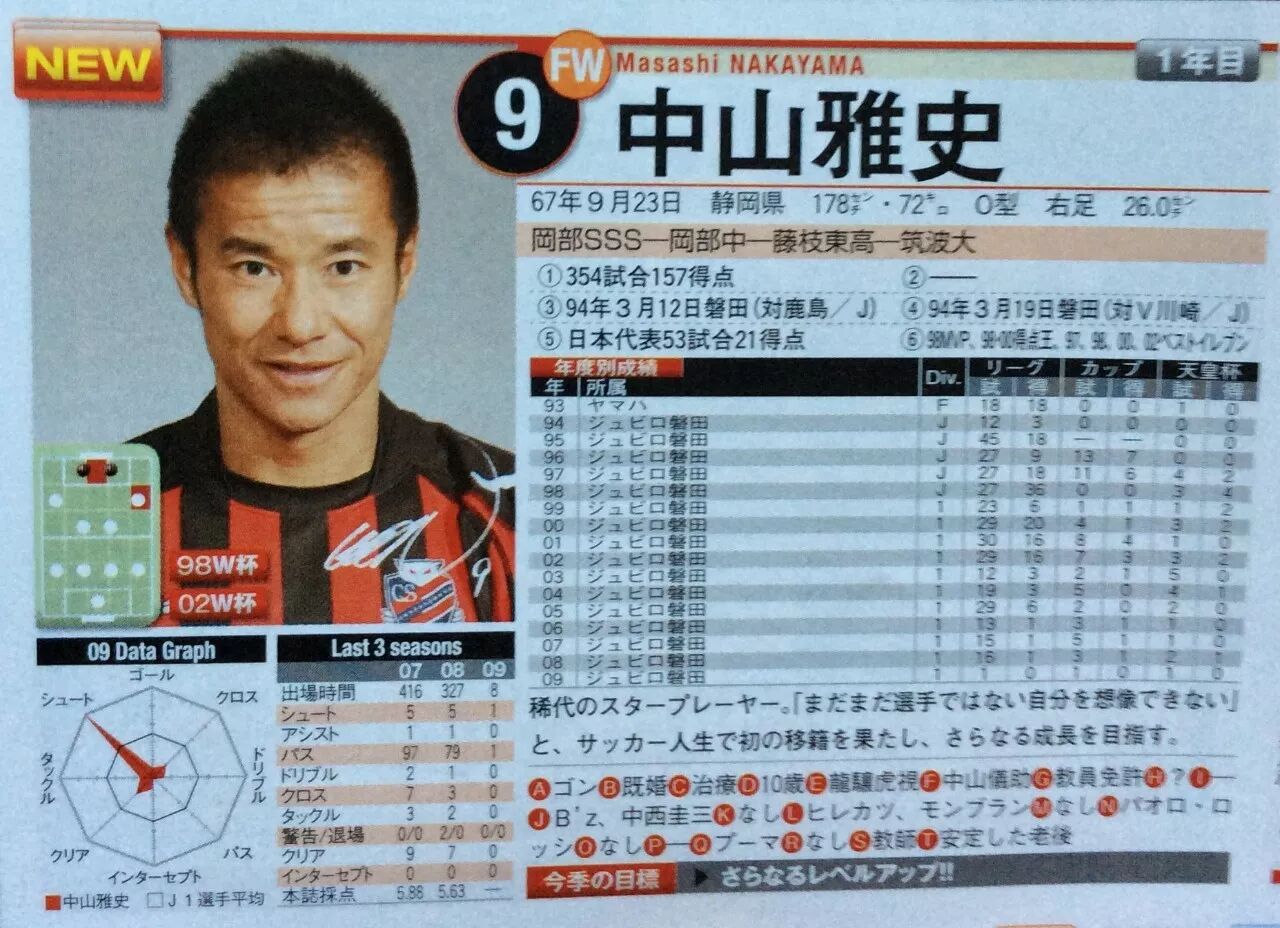 NEW
9
FW
Masashi NAKAYAMA
1年目
中山雅史
67年9月23日 静岡県 178㌢・72㌔ O型 右足 26.0㌢
岡部SSS―岡部中―藤枝東高―筑波大
①354試合157得点 ②――
③94年3月12日磐田(対鹿島/J) ④94年3月19日磐田(対V川崎/J)
⑤日本代表53試合21得点 ⑥98MVP、98・00得点王、97、98、00、02ベストイレブン
年度別成績 Div. リーグ カップ 天皇杯
年 所属 試 得 試 得 試 得
93 ヤマハ F 18 18 0 0 1 0
94 ジュビロ磐田 J 12 3 0 0 0 0
95 ジュビロ磐田 J 45 18 ― ― 0 0
96 ジュビロ磐田 J 27 9 13 7 0 0
97 ジュビロ磐田 J 27 18 11 6 4 2
98 ジュビロ磐田 J 27 36 0 0 3 4
99 ジュビロ磐田 1 23 6 1 1 1 2
00 ジュビロ磐田 1 29 20 4 1 3 2
01 ジュビロ磐田 1 30 16 8 4 1 0
02 ジュビロ磐田 1 29 16 7 3 3 2
03 ジュビロ磐田 1 12 3 2 1 5 0
04 ジュビロ磐田 1 19 3 5 0 4 1
05 ジュビロ磐田 1 29 6 2 0 2 0
06 ジュビロ磐田 1 13 1 3 1 1 0
07 ジュビロ磐田 1 15 1 5 1 1 0
08 ジュビロ磐田 1 16 1 3 1 2 1
09 ジュビロ磐田 1 1 0 1 0 1 0
98W杯
02W杯
CS
9
09 Data Graph
ゴール
シュート
クロス
タックル
ドリブル
クリア
パス
インターセプト
■中山雅史 □J1選手平均
Last 3 seasons
07 08 09
出場時間 416 327 8
シュート 5 5 1
アシスト 1 1 0
パス 97 79 1
ドリブル 2 1 0
クロス 7 3 0
タックル 3 2 0
警告/退場 0/0 2/0 0/0
クリア 9 7 0
インターセプト 0 0 0
本誌採点 5.88 5.63 ―
稀代のスタープレーヤー。「まだまだ選手ではない自分を想像できない」
と、サッカー人生で初の移籍を果たし、さらなる成長を目指す。
Aゴン B既婚 C治療 D10歳 E龍驤虎視 F中山儀助 G教員免許 H? I―
J B'z、中西圭三 Kなし Lヒレカツ、モンブラン Mなし Nパオロ・ロ
ッシ Oなし P― Qプーマ Rなし S教師 T安定した老後
今季の目標 ▶さらなるレベルアップ!!